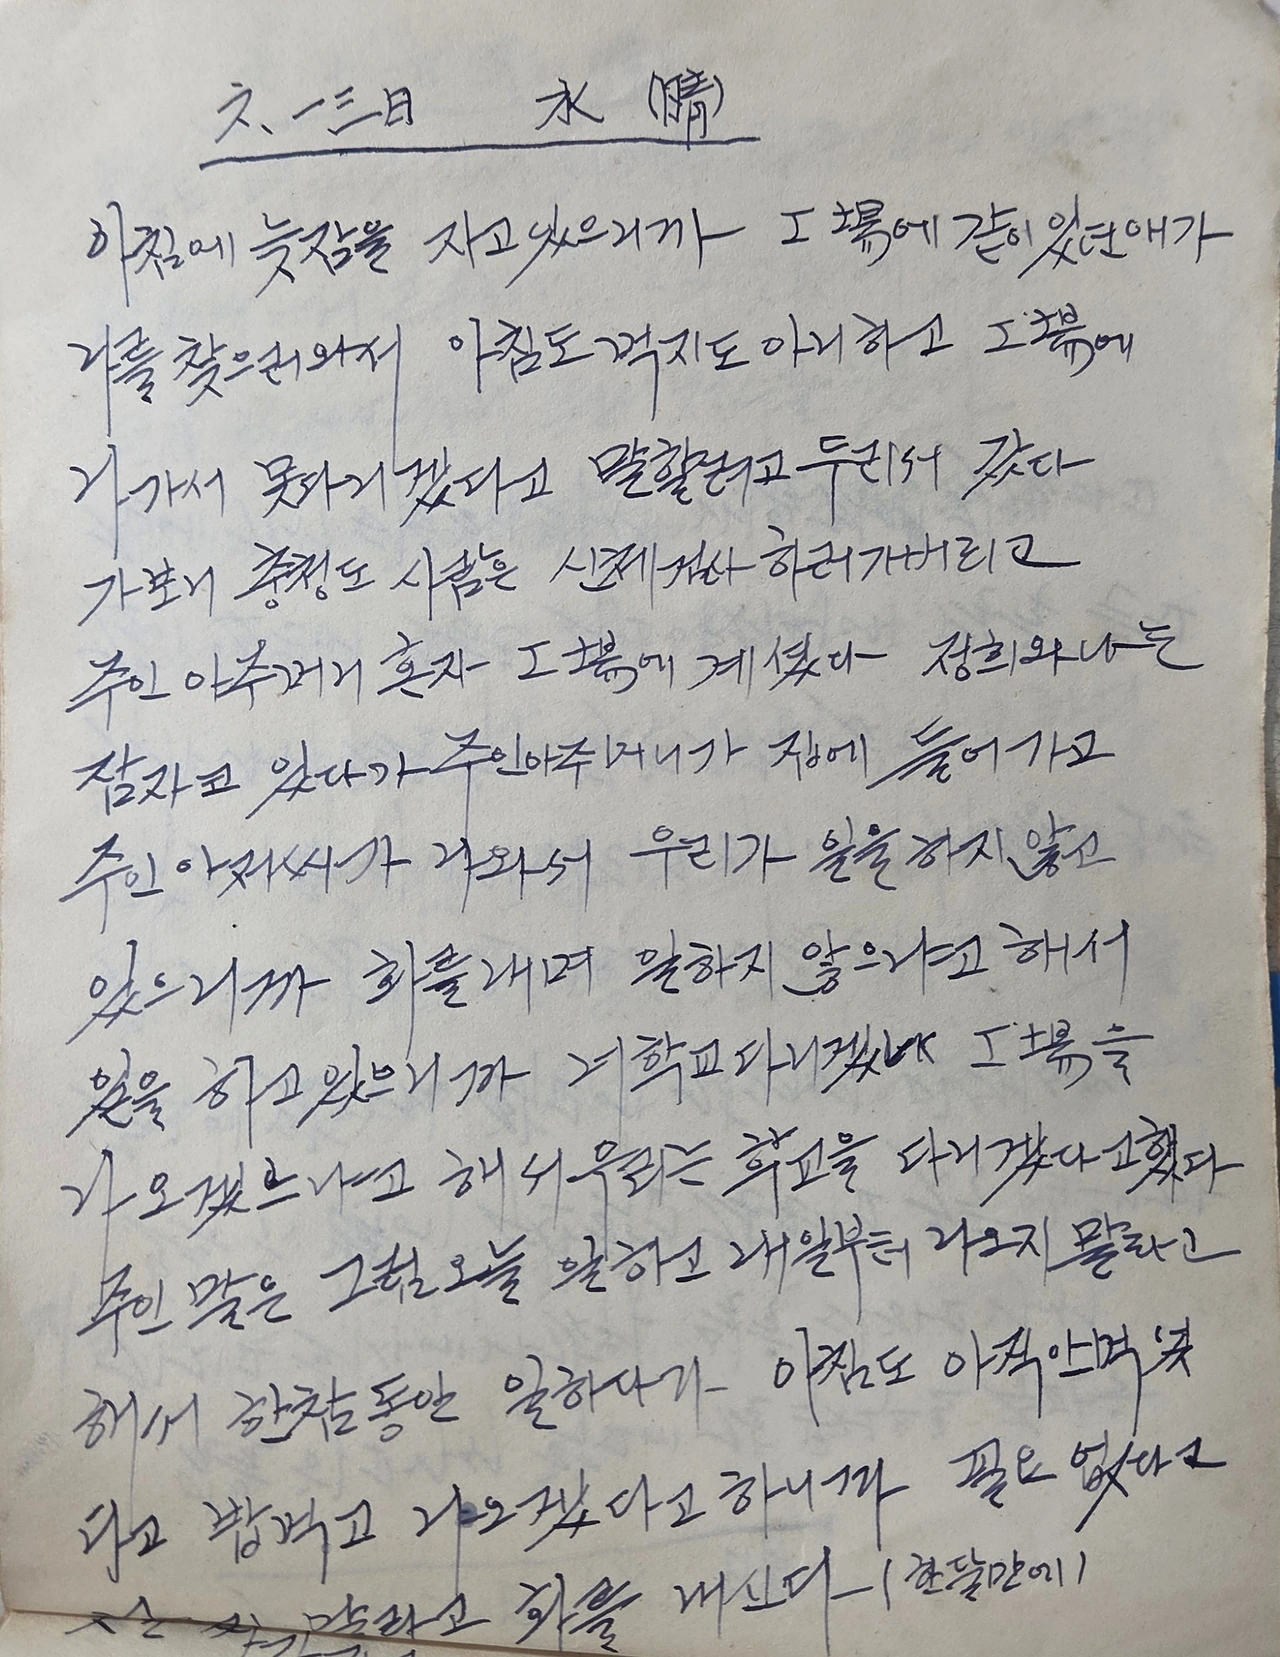 六、一三日 水 (晴)
아침에 늦잠을 자고있으니까 工場에 같이있던애가
나를 찾으러와서 아침도 먹지도 아니하고 工場에
나가서 못다니겠다고 말할려고 두리서 갔다
가보니 충청도 사람은 신체검사 하러가버리고
주인 아주머니 혼자 工場에 계셨다 정희와나는
잠자코 있다가 주인아주머니가 집에 들어가고
주인 아저씨가 나와서 우리가 일을 하지않고
있으니까 화를내며 일하지 않으냐고 해서
일을 하고있으니까 너학교다니겠냐 工場을
나오겠느냐고 해서 우리는 학교을 다니겠다고했다
주인 말은 그럼오늘 일하고 내일부터 나오지 말라고
해서 한참동안 일하다가 아침도 아직안먹었
다고 밥먹고 나오겠다고하니까 필요 없다고
말라고 화를 내신다 (한달만에)